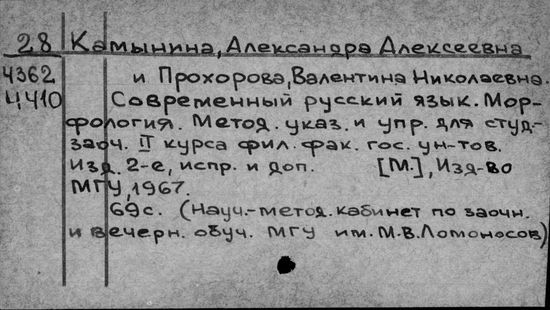 28 Камынина, Александра Алексеевна
4362 и Прохорова, Валентина Николаевна.
4410 Современный русский язык. Мор-
фология. Метод. указ. и упр. для студ-
заоч. II курса фил. фак. гос. ун-тов.
Изд. 2-е, испр. и доп. [М.], Изд-во
МГУ, 1967.
69с. (Науч.-метод. кабинет по заочн.
и вечерн. обуч. МГУ им. М.В. Ломоносов)